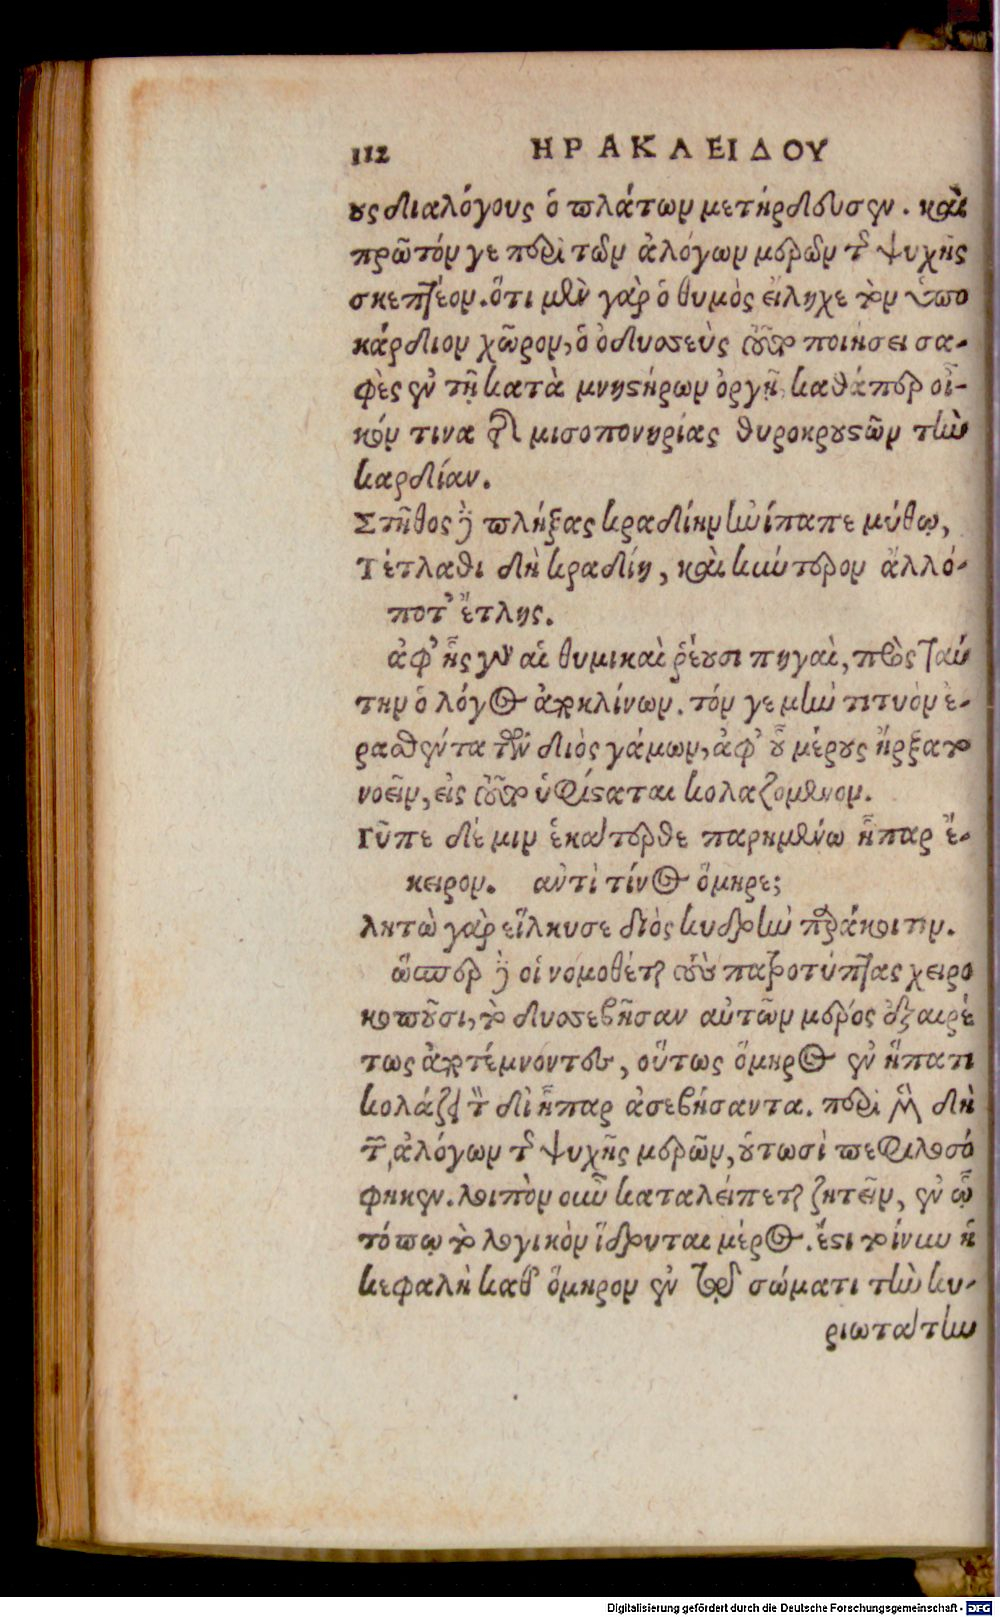 112 ΗΡΑΚΛΕΙΔΟΥ
ους διαλόγους ὁ πλάτων μετήρδευσεν. καὶ
πρῶτόν γε περὶ τῶν ἀλόγων μερῶν τῆς ψυχῆς
σκεπτέον. ὅτι μὲν γὰρ ὁ θυμὸς εἴληχε τὸν ὑπο
κάρδιον χῶρον, ὁ ὀδυσσεὺς τοῦτο ποιήσει σα-
φὲς ἐν τῇ κατὰ μνηστήρων ὀργῇ, καθάπερ οἶ-
κόν τινα τῆς μισοπονηρίας θυροκρουστῶν τὴν
καρδίαν.
Στῆθος δὲ πλήξας κραδίην ἠνίπαπε μύθῳ,
Τέτλαθι δὴ κραδίη, καὶ κύντερον ἄλλό-
ποτ' ἔτλης.
ἀφ' ἧς γὰρ αἱ θυμικαὶ ῥέουσι πηγαὶ, πρὸς ταύ
την ὁ λόγος ἀποκλίνων. τόν γε μὴν τιτυὸν ἐ-
ρασθέντα τῶν διὸς γάμων, ἀφ' οὗ μέρους ἤρξατο
νοεῖν, εἰς τοῦτο ὑφίσταται κολαζόμενον.
Γῦπε δέ μιν ἑκάτερθε παρημένω ἧπαρ ἔ-
κειρον. αὐτὶ τίνος ὅμηρε;
λητὼ γὰρ εἵλκυσε διὸς κυδρὴν παράκοιτιν.
ὥσπερ δὲ οἱ νομοθέται τοὺς πατροτύπτας χειρο
κοποῦσι, τὸ δυσσεβῆσαν αὐτῶν μέρος ἐξαιρέ
τως ἀποτέμνοντες, οὕτως ὅμηρος ἐν ἥπατι
κολάζει τὸν δι' ἧπαρ ἀσεβήσαντα. περὶ μὲν δὴ
τῶν ἀλόγων τῆς ψυχῆς μερῶν, οὑτωσὶ πεφιλοσό
φηκεν. λοιπὸν οὖν καταλείπεται ζητεῖν, ἐν ᾧ
τόπῳ τὸ λογικὸν ἵδρυται μέρος. ἔστι τοίνυν ἡ
κεφαλὴ καθ' ὅμηρον ἐν τῷ σώματι τὴν κυ-
ριωτάτην
Digitalisierung gefördert durch die Deutsche Forschungsgemeinschaft - DFG